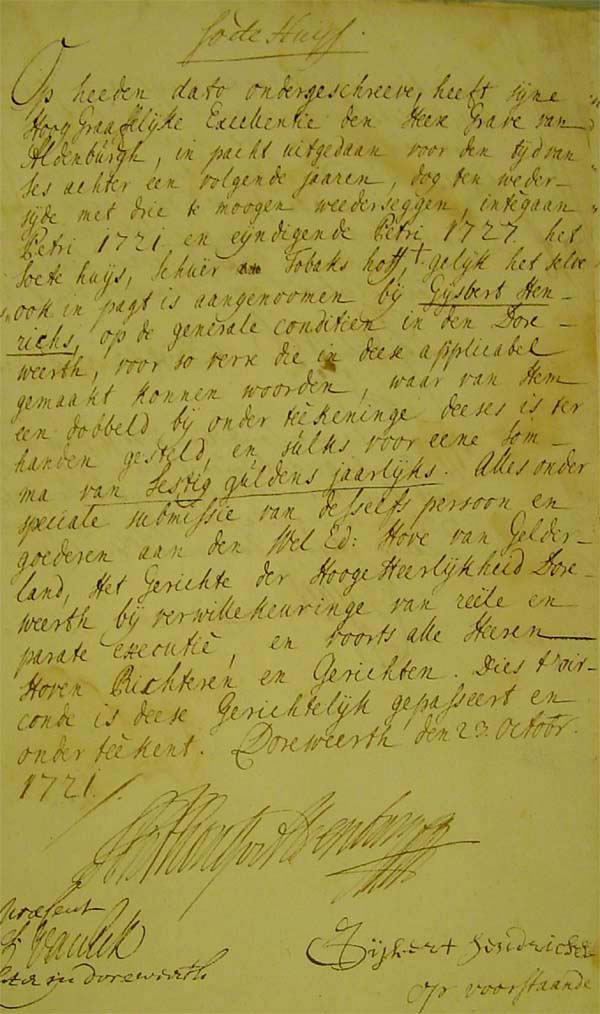 Soete Huijs.
Op heeden dato ondergeschreeve, heeft sijne
Hoog Graaflijke Excellentie den Heer Grave van
Aldenburgh, in pacht uitgedaan voor den tijd van
ses achter een volgende jaaren, dog ten weder-
sijde met drie te moogen weederseggen, integaan
Petri 1721 en eijndigende Petri 1727. het
Soete huijs, schuer Tobaks hoff, † gelijk het selve
ook in pagt is aangenoomen bij Gijsbert Hen-
richs, op de generale conditien in den Dore-
weerth, voor so verre die in deese applicabel
gemaakt konnen woorden, waar van Hem
een dobbeld bij onderteekeninge deeses is ter
handen gesteld, en sulks voor eene som-
ma van Sestig guldens jaarlijks. Alles onder
speciale submissie van desselfs persoon en
goederen aan den Wel Ed: Hove van Gelder-
land, Het Gerichte der Hooge Heerlijkheid Dore-
weerth bij verwillekeuringe van reële en
parate executië, en voorts alle Heeren
Hoven Richteren en Gerichten. Dies t'oir-
conde is deese Gerichtelijk gepasseert en
onderteekent. Doreweerth den 23 Octobr.
1721.
præsent
in dorewerth
Gijsbert hendricks
op voorstaande